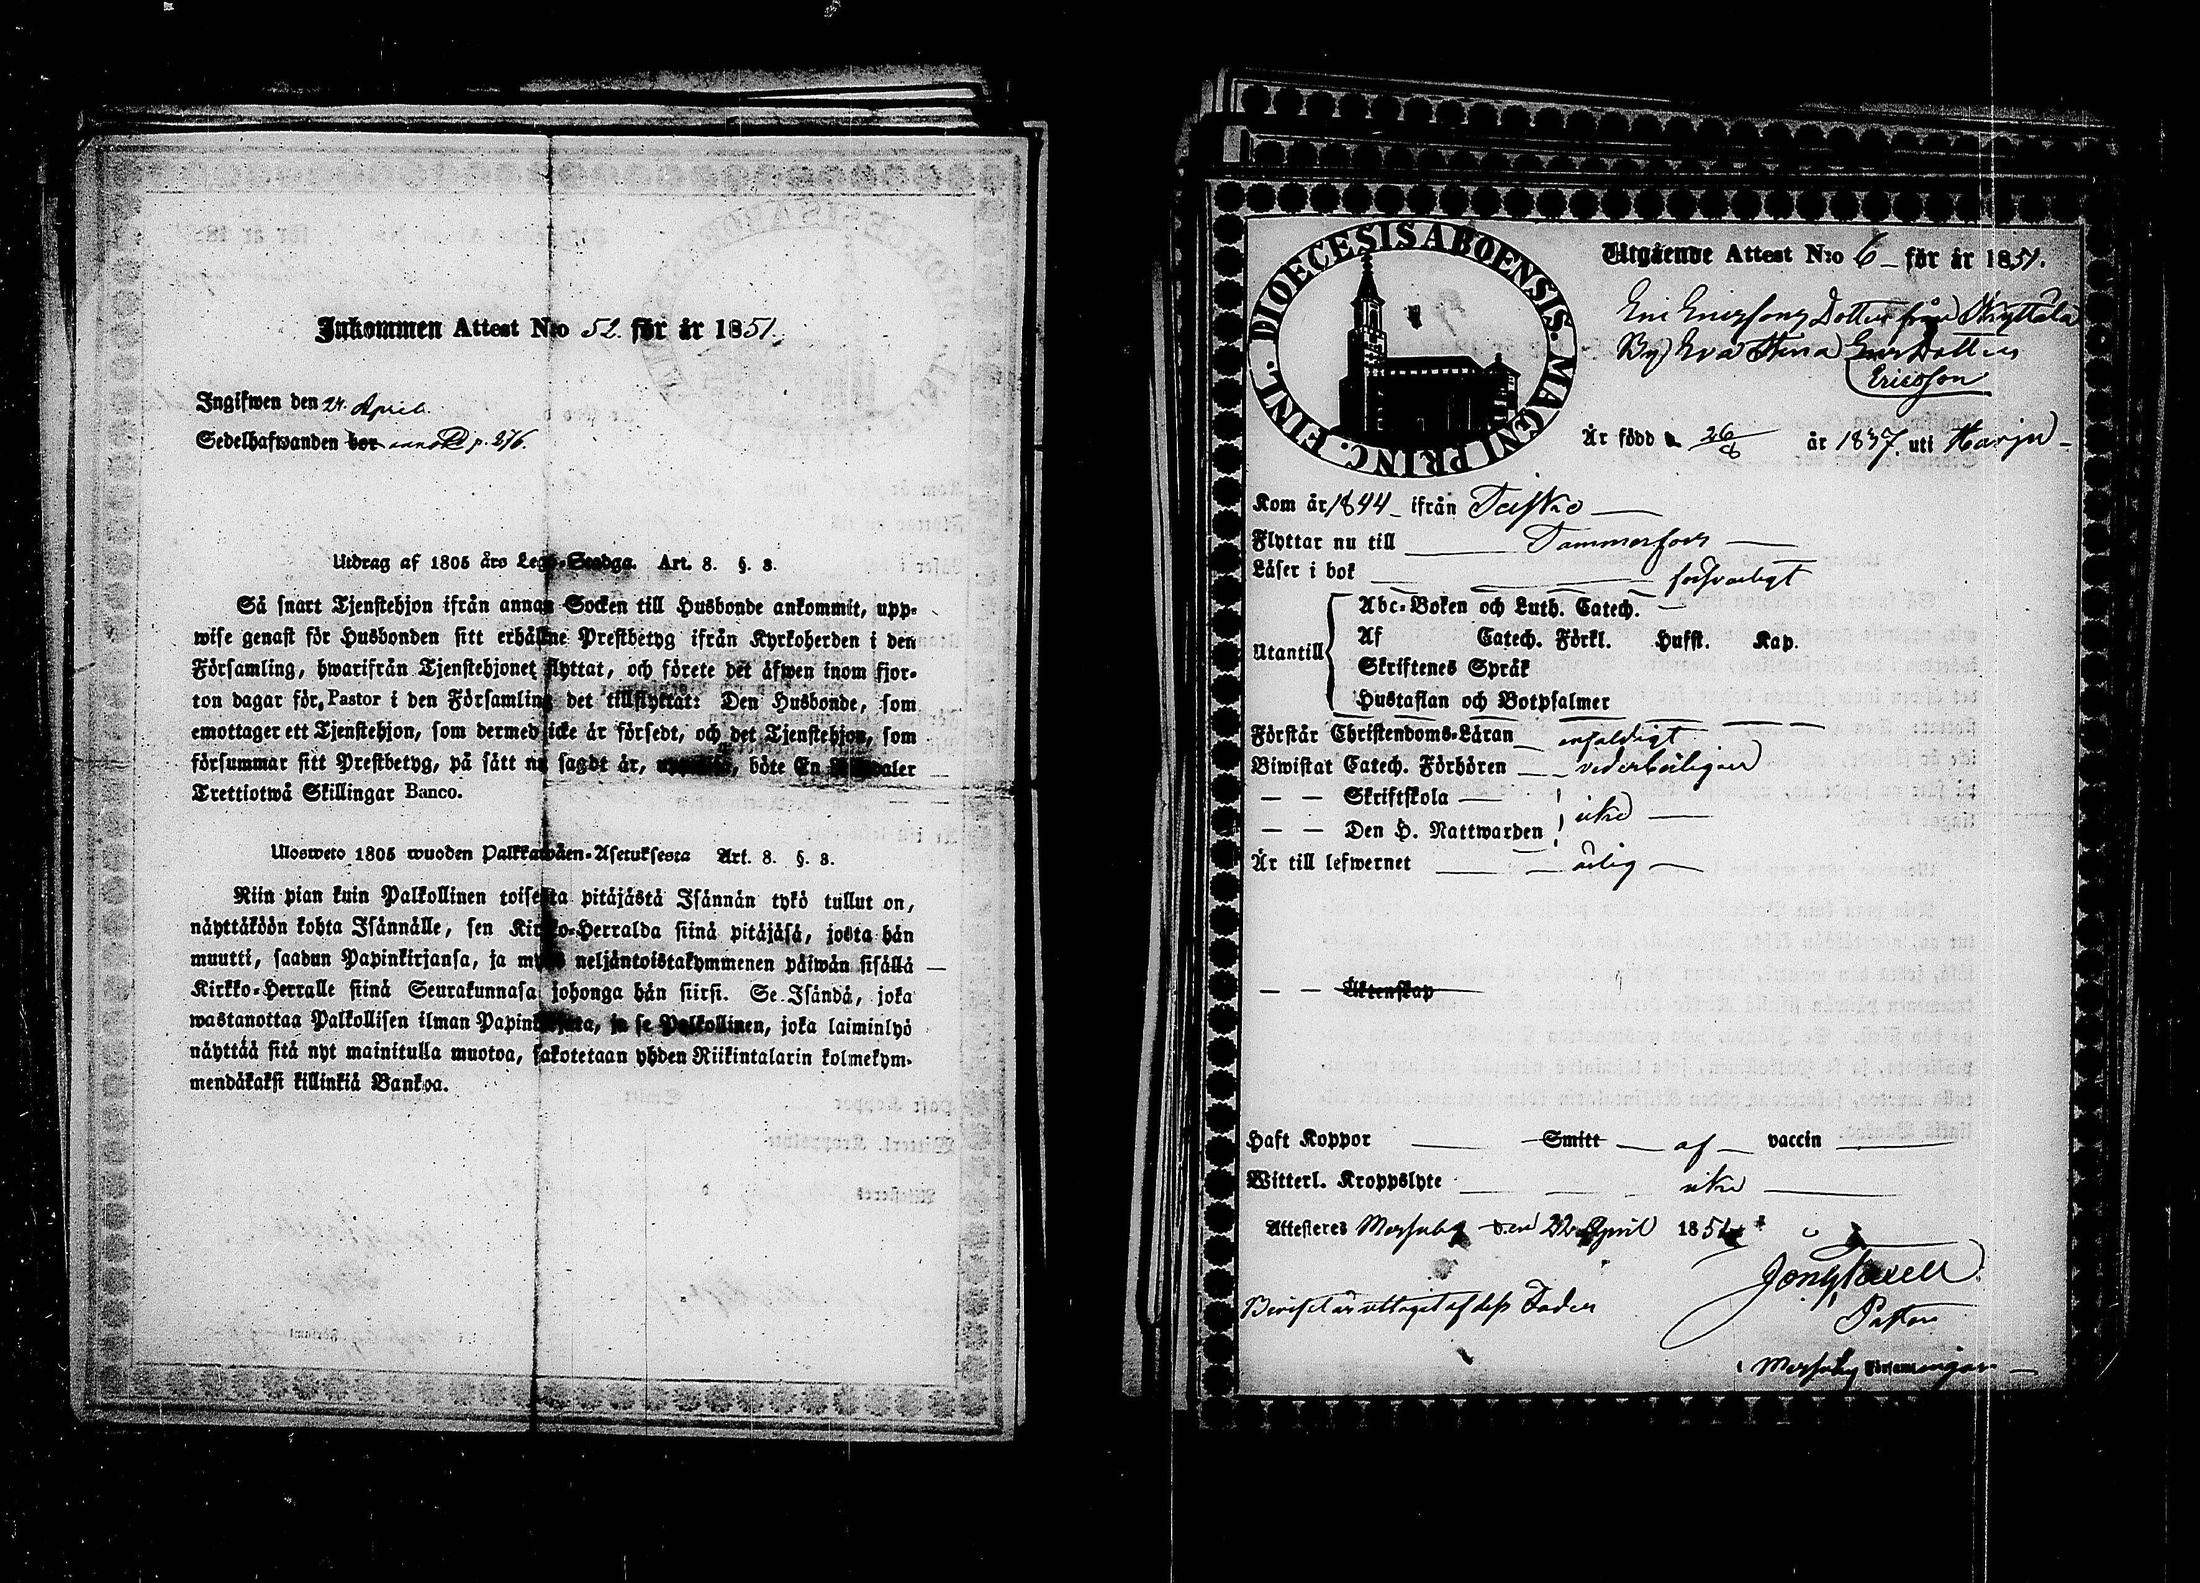 Inkommen Attest N:o 52. för år 1851.
Ingifwen den 24. April.
Sedelhafwanden bor p. 276.
Utdrag af 1805 års Lego-Stadga. Art. 8. §. 8.
Så snart Tjenstehjon ifrån annan Socken till Husbonde ankommit, upp-
wise genast för Husbonden sitt erhållne Prestbetyg ifrån Kyrkoherden i den
Församling, hwarifrån Tjenstehjonet flyttat, och förete det äfwen inom fjor-
ton dagar för Pastor i den Församling det tillflyttat: Den Husbonde, som
emottager ett Tjenstehjon, som dermed icke är försedt, och det Tjenstehjon, som
försummar sitt Prestbetyg, på sätt nu sagdt är, böte En
Trettiotwå Skillingar Banco.
Ulosweto 1805 wuoden Palkkawäen-Asetuksesta Art. 8. §. 8.
Niin pian kuin Palkollinen toisesta pitäjästä Isännän tykö tullut on,
näyttäköön kohta Isännälle, sen Kirkko-Herralda siinä pitäjäsä, josta hän
muutti, saadun Papinkirjansa, ja myös neljäntoistakymmenen päiwän sisällä
Kirkko-Herralle siinä Seurakunnasa johonga hän siirsi. Se Isändä, joka
wastanottaa Palkollisen ilman Papinkirjata, ja se Palkollinen, joka laiminlyö
näyttää sitä nyt mainitulla muotoa, sakotetaan yhden Riikintalarin kolmekym-
mendäkaksi killinkiä Bankoa.
DIOECESIS ABOENSIS. MAGNI PRINC. FINL.
Utgående Attest N:o 6 för år 1851.
Dotter från
By Eva Stina
Ericsson
Är född d. 26/8 år 1837. uti Harju
Kom år 1844 ifrån Teisko
Flyttar nu till Tammerfors
Läser i bok försvarligt
Utantill
Abc-Boken och Luth. Catech.
Af Catech. Förkl. Hufst. Kap.
Skriftenes Språk
Hustaflan och Botpsalmer
Förstår Christendoms-Läran enfaldigt
Biwistat Catech. Förhören vederbörligen
— — Skriftskola
— — Den H. Nattwarden icke
Är till lefwernet ärlig
— — Äktenskap
Haft Koppor Smitt af vaccin
Witterl. Kroppslyte icke
Attesteras Messuby den 22 April 1851
Beviset är uttaget af dess Fader
Pastor
i Messuby Församlingar